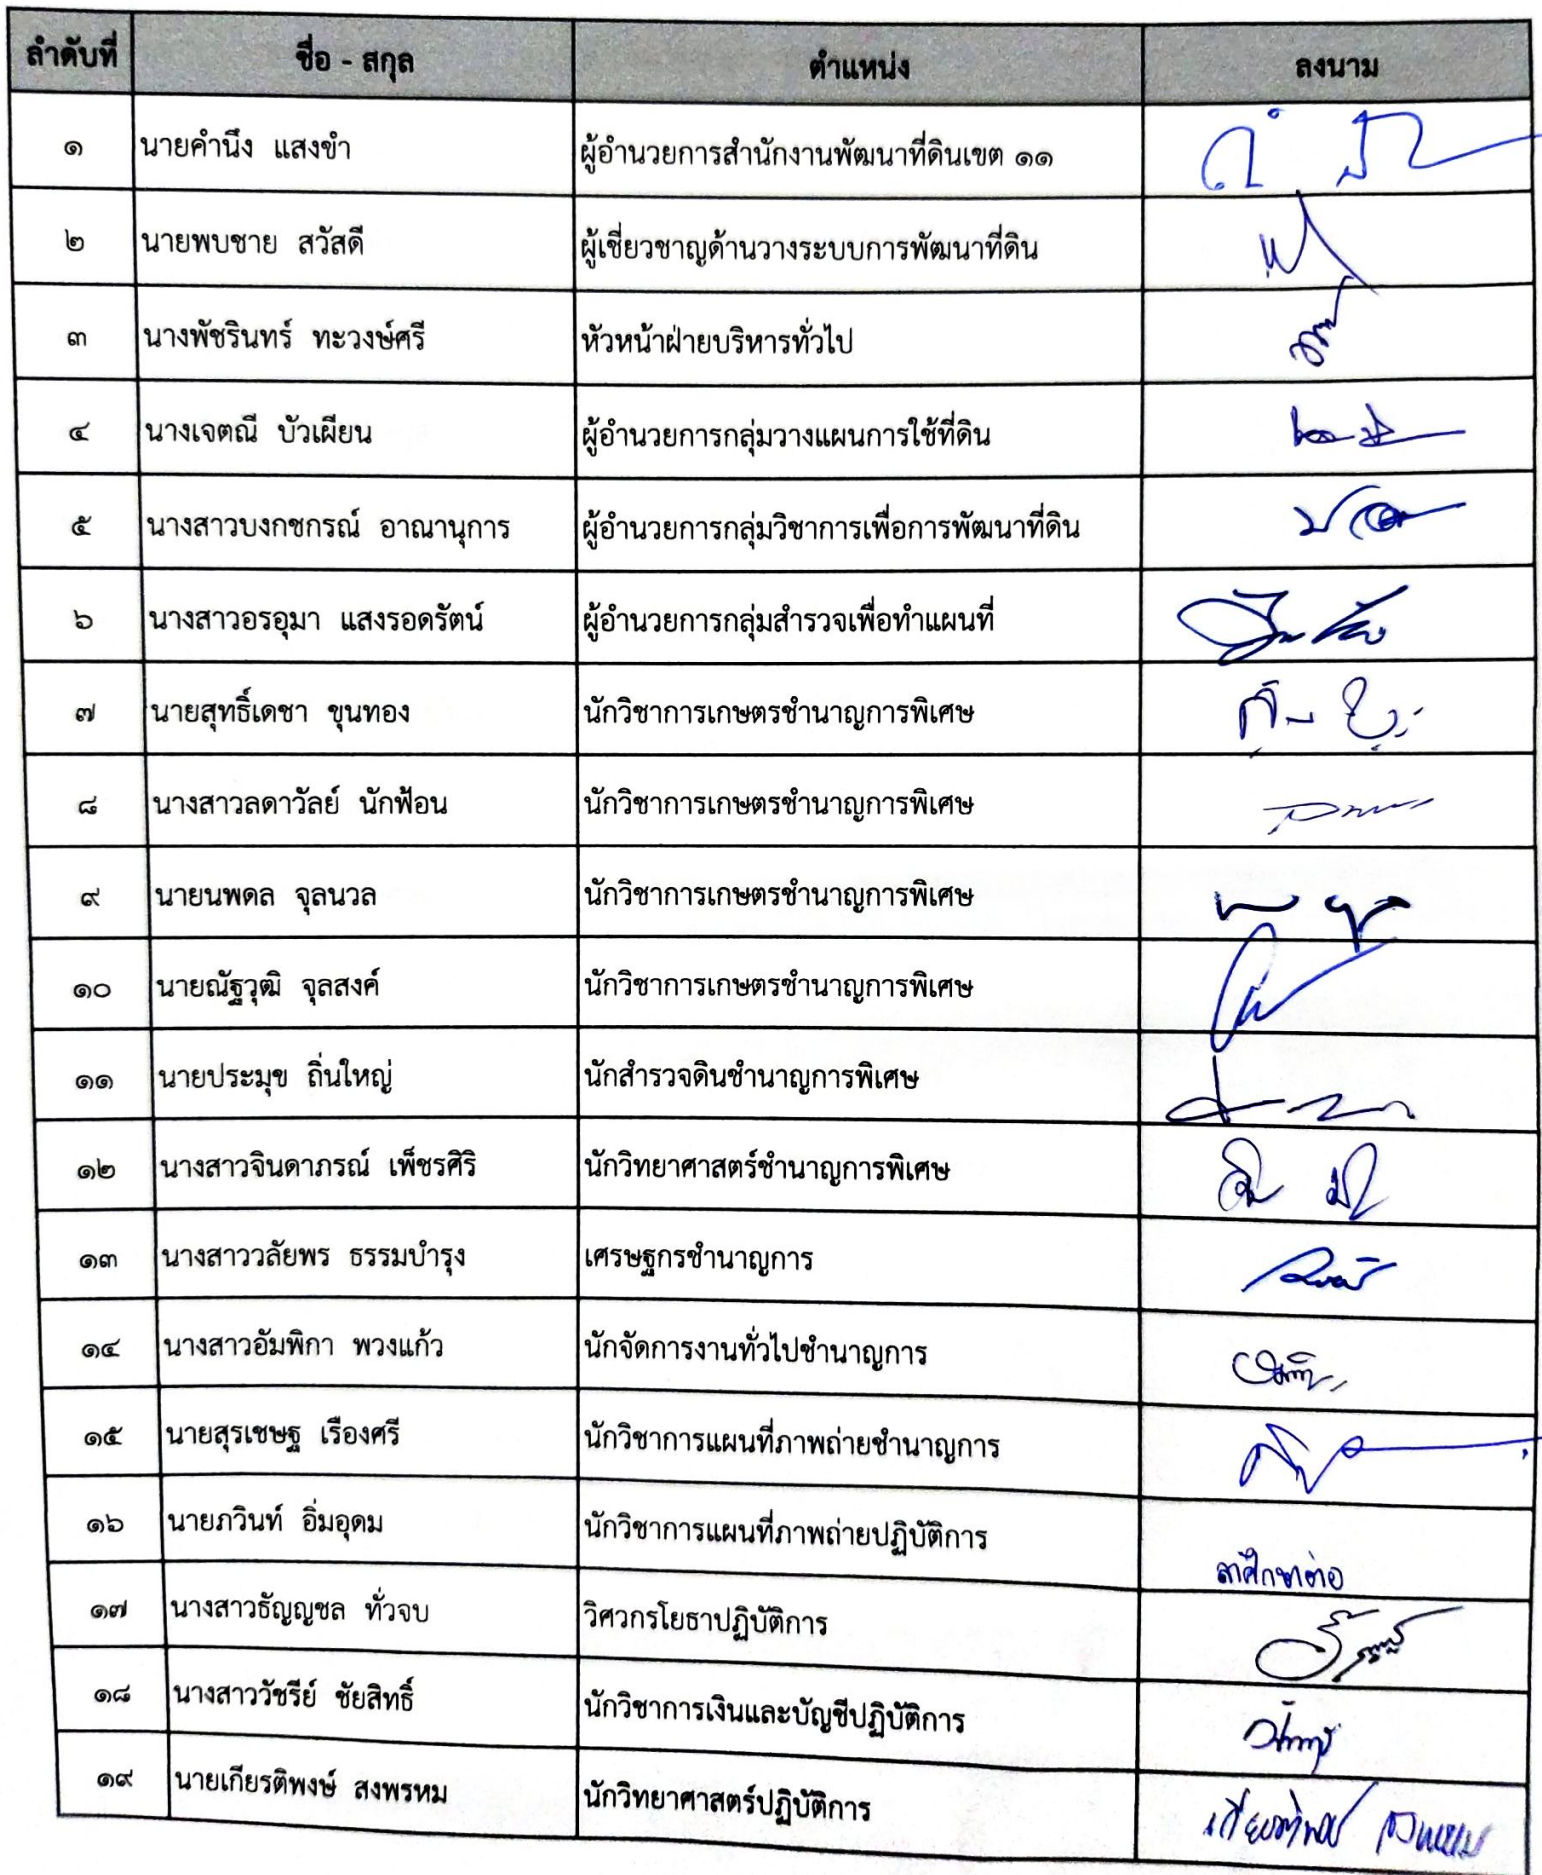 ลำดับที่ ชื่อ - สกุล ตำแหน่ง ลงนาม
๑ นายคำนึง แสงขำ ผู้อำนวยการสำนักงานพัฒนาที่ดินเขต ๑๑
๒ นายพบชาย สวัสดี ผู้เชี่ยวชาญด้านวางระบบการพัฒนาที่ดิน
๓ นางพัชรินทร์ ทะวงษ์ศรี หัวหน้าฝ่ายบริหารทั่วไป
๔ นางเจตณี บัวเผียน ผู้อำนวยการกลุ่มวางแผนการใช้ที่ดิน
๕ นางสาวบงกชกรณ์ อาณานุการ ผู้อำนวยการกลุ่มวิชาการเพื่อการพัฒนาที่ดิน
๖ นางสาวอรอุมา แสงรอดรัตน์ ผู้อำนวยการกลุ่มสำรวจเพื่อทำแผนที่
๗ นายสุทธิ์เดชา ขุนทอง นักวิชาการเกษตรชำนาญการพิเศษ
๘ นางสาวลดาวัลย์ นักฟ้อน นักวิชาการเกษตรชำนาญการพิเศษ
๙ นายนพดล จุลนวล นักวิชาการเกษตรชำนาญการพิเศษ
๑๐ นายณัฐวุฒิ จุลสงค์ นักวิชาการเกษตรชำนาญการพิเศษ
๑๑ นายประมุข ถิ่นใหญ่ นักสำรวจดินชำนาญการพิเศษ
๑๒ นางสาวจินดาภรณ์ เพ็ชรศิริ นักวิทยาศาสตร์ชำนาญการพิเศษ
๑๓ นางสาววลัยพร ธรรมบำรุง เศรษฐกรชำนาญการ
๑๔ นางสาวอัมพิกา พวงแก้ว นักจัดการงานทั่วไปชำนาญการ
๑๕ นายสุรเชษฐ เรืองศรี นักวิชาการแผนที่ภาพถ่ายชำนาญการ
๑๖ นายภวินท์ อิ่มอุดม นักวิชาการแผนที่ภาพถ่ายปฏิบัติการ ลาศึกษาต่อ
๑๗ นางสาวธัญญชล ทั่วจบ วิศวกรโยธาปฏิบัติการ
๑๘ นางสาววัชรีย์ ชัยสิทธิ์ นักวิชาการเงินและบัญชีปฏิบัติการ
๑๙ นายเกียรติพงษ์ สงพรหม นักวิทยาศาสตร์ปฏิบัติการ